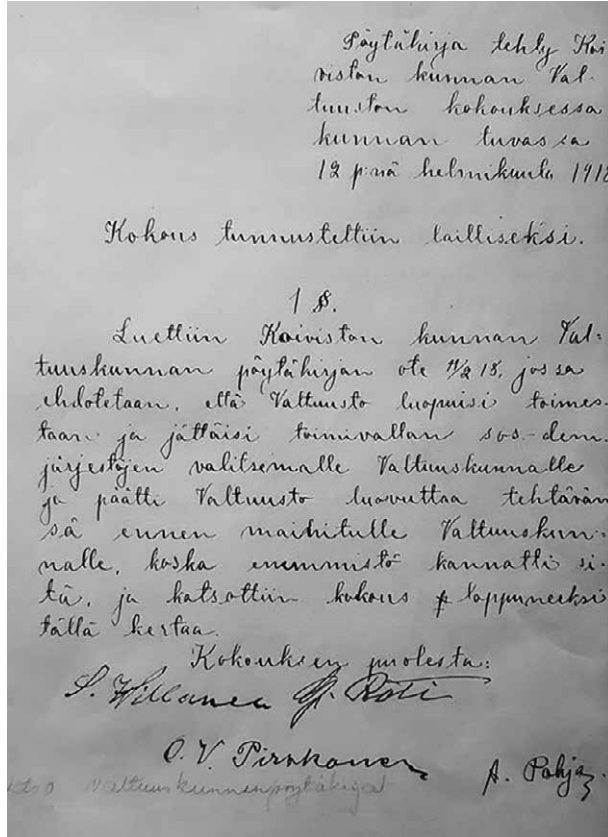 Pöytäkirja tehty Koi
viston kunnan Val-
tuuston kokouksessa
kunnan tuvassa
12 p:nä helmikuuta 1918
Kokous tunnustettiin lailliseksi.
1 §.
Luettiin Koiviston kunnan Val-
tuuskunnan pöytäkirjan ote 11/2 18, jossa
ehdotetaan, että Valtuusto luopuisi toimes-
taan ja jättäisi toimivallan sos-dem.
järjestöjen valitsemalle Valtuuskunnalle
ja päätti Valtuusto luovuttaa tehtävän
sä ennen mainitulle Valtuuskun-
nalle, koska enemmistö kannatti si-
tä, ja katsottiin kokous loppuneeksi
tällä kertaa.
Kokouksen puolesta:
S. Hillanen Rôti
O. V. Pirokonen
A. Pohja
Valtuuskunnenpöytäkirja